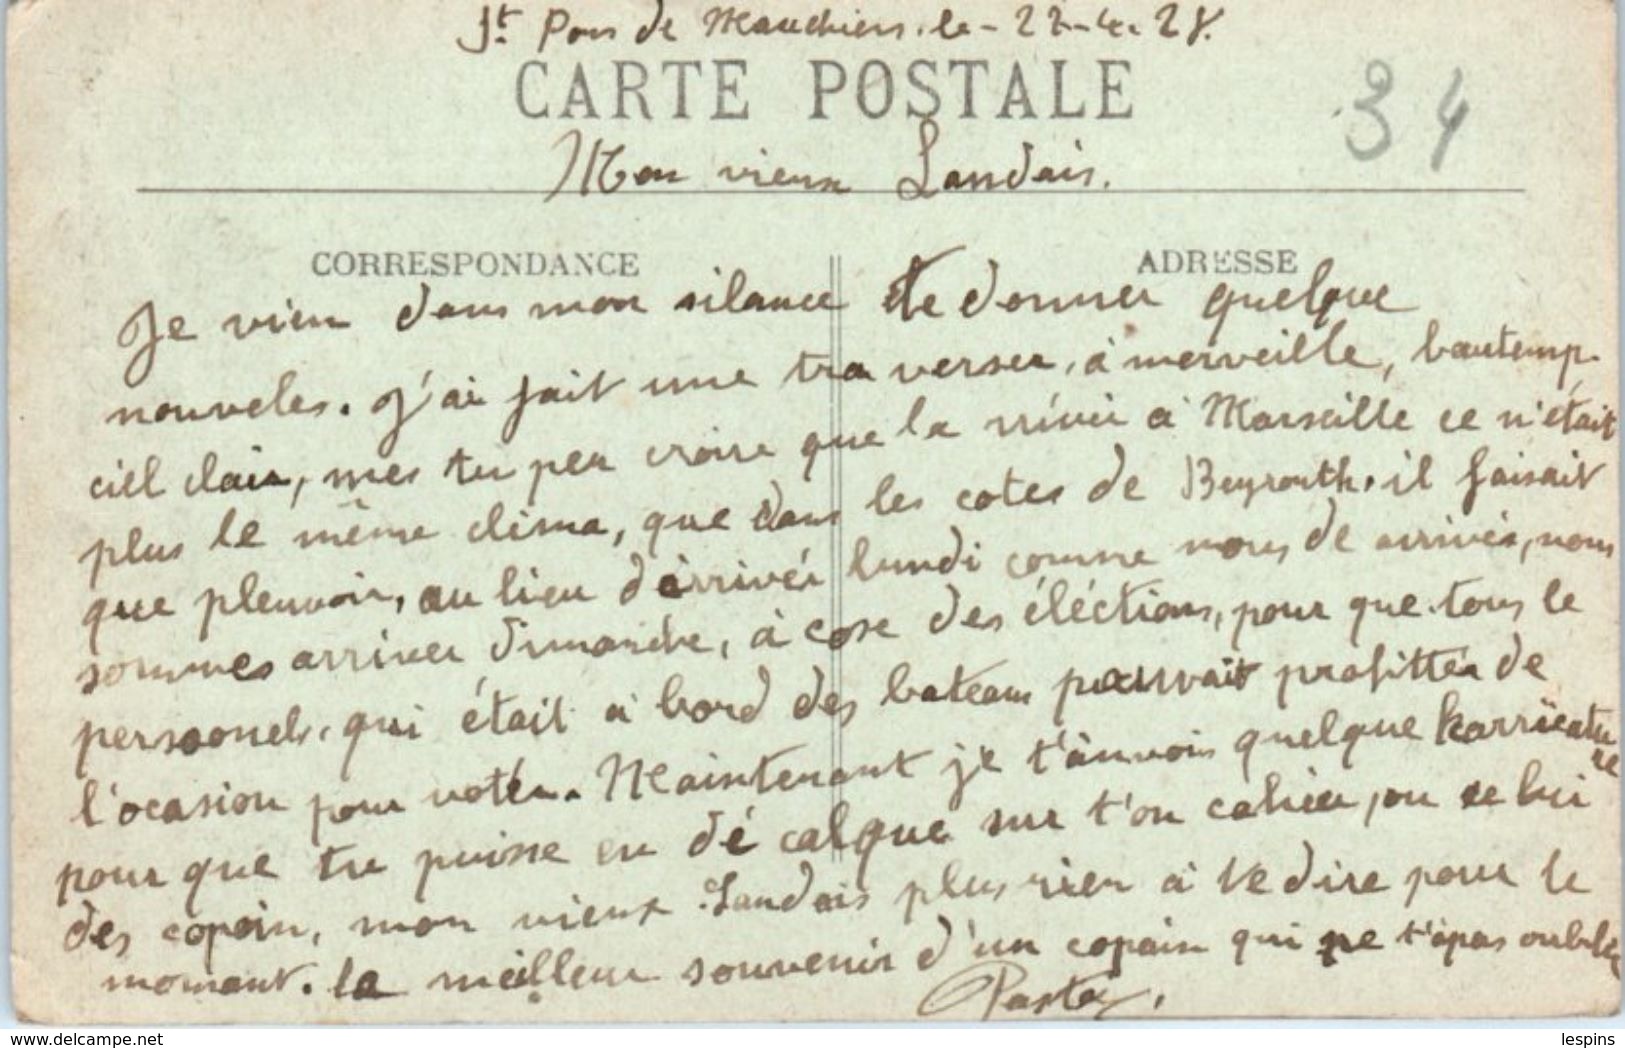 St Pons de Mauchiens. le - 22-4-28.
CARTE POSTALE
34
Mon vieux Landais.
CORRESPONDANCE
ADRESSE
Je vien dans mon silance te donner quelque
nouveles. J'ai fait une tra verser, à merveille, bautemp.
ciel clair, mes tu peu croire que la rrivée à Marseille ce n'était
plus le même clima, que dans les cotes de Beyrouth. il faisait
que pleuvoir, au lieu d'arrivér lundi comme nous de arrivés, nous
sommes arriver Dimanche, à cose des éléctions, pour que tous le
personels, qui était à bord des bateaus pouvait profittér de
l'ocasion pour votér. Maintenant je t'ânvois quelque karricature
pour que tu puisse en dé calque sur t'on cahier, ou ce lui
des copain, mon vieux Landais plus rien à te dire pour le
momant. la meilleur souvenir d'un copain qui ne t'apas oublier